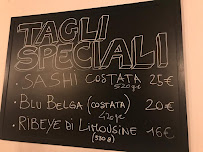 TAGLI
SPECIALI
• SASHI COSTATA 25€
520gr
• BLU BELGA (COSTATA) 20€
420gr
• RIBEYE Di LIMOUSINE 16€
(380g)